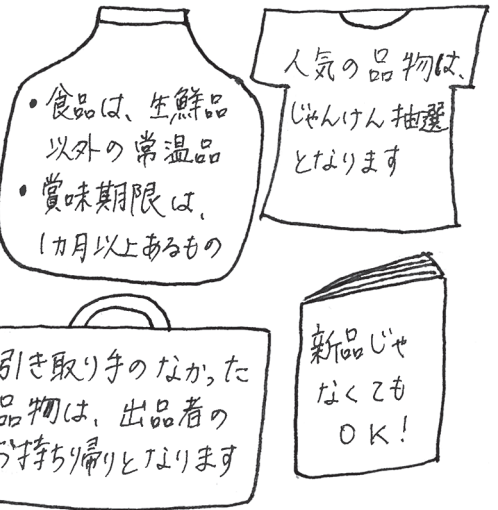 ・食品は、生鮮品
以外の常温品
・賞味期限は、
1カ月以上あるもの
人気の品物は、
じゃんけん抽選
となります
引き取り手のなかった
品物は、出品者の
お持ち帰りとなります
新品じゃ
なくても
OK!